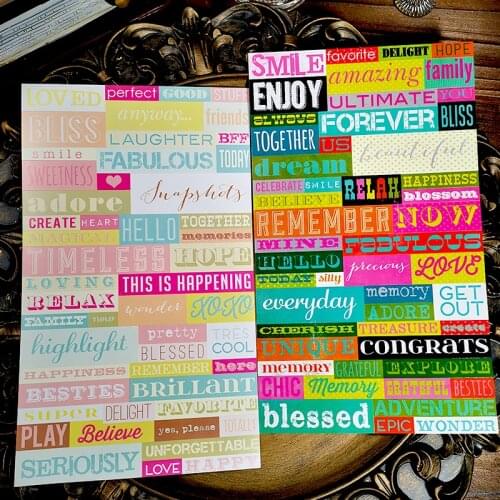 LOVED perfect GOOD STUFF
BLISS anyway... friends
LAUGHTER BFF
smile FABULOUS TODAY
SWEETNESS Snapshots
adore
CREATE HEART HELLO TOGETHER
MAGICAL memories
TIMELESS HOPE
LOVING THIS IS HAPPENING
RELAX wonder XOXO
FAMILY
highlight pretty TRES COOL
BLESSED
HAPPINESS REMEMBER here
BESTIES BRILLANT
super DELIGHT FAVORITE
PLAY Believe yes, please TOTALLY
UNFORGETTABLE
SERIOUSLY LOVE HAPPY
SMILE favorite DELIGHT HOPE
amazing family
ENJOY ULTIMATE YOU
always FOREVER BLISS
TOGETHER US beautiful
dream
CELEBRATE SMILE RELAX HAPPINESS
BELIEVE blossom
REMEMBER NOW
MINE FABULOUS
HELLO precious LOVE
TODAY silly
everyday memory GET OUT
ADORE
CHERISH TREASURE create
UNIQUE CONGRATS
memory GRATEFUL EXPLORE
CHIC Memory GRATEFUL BESTIES
blessed ADVENTURE
EPIC WONDER